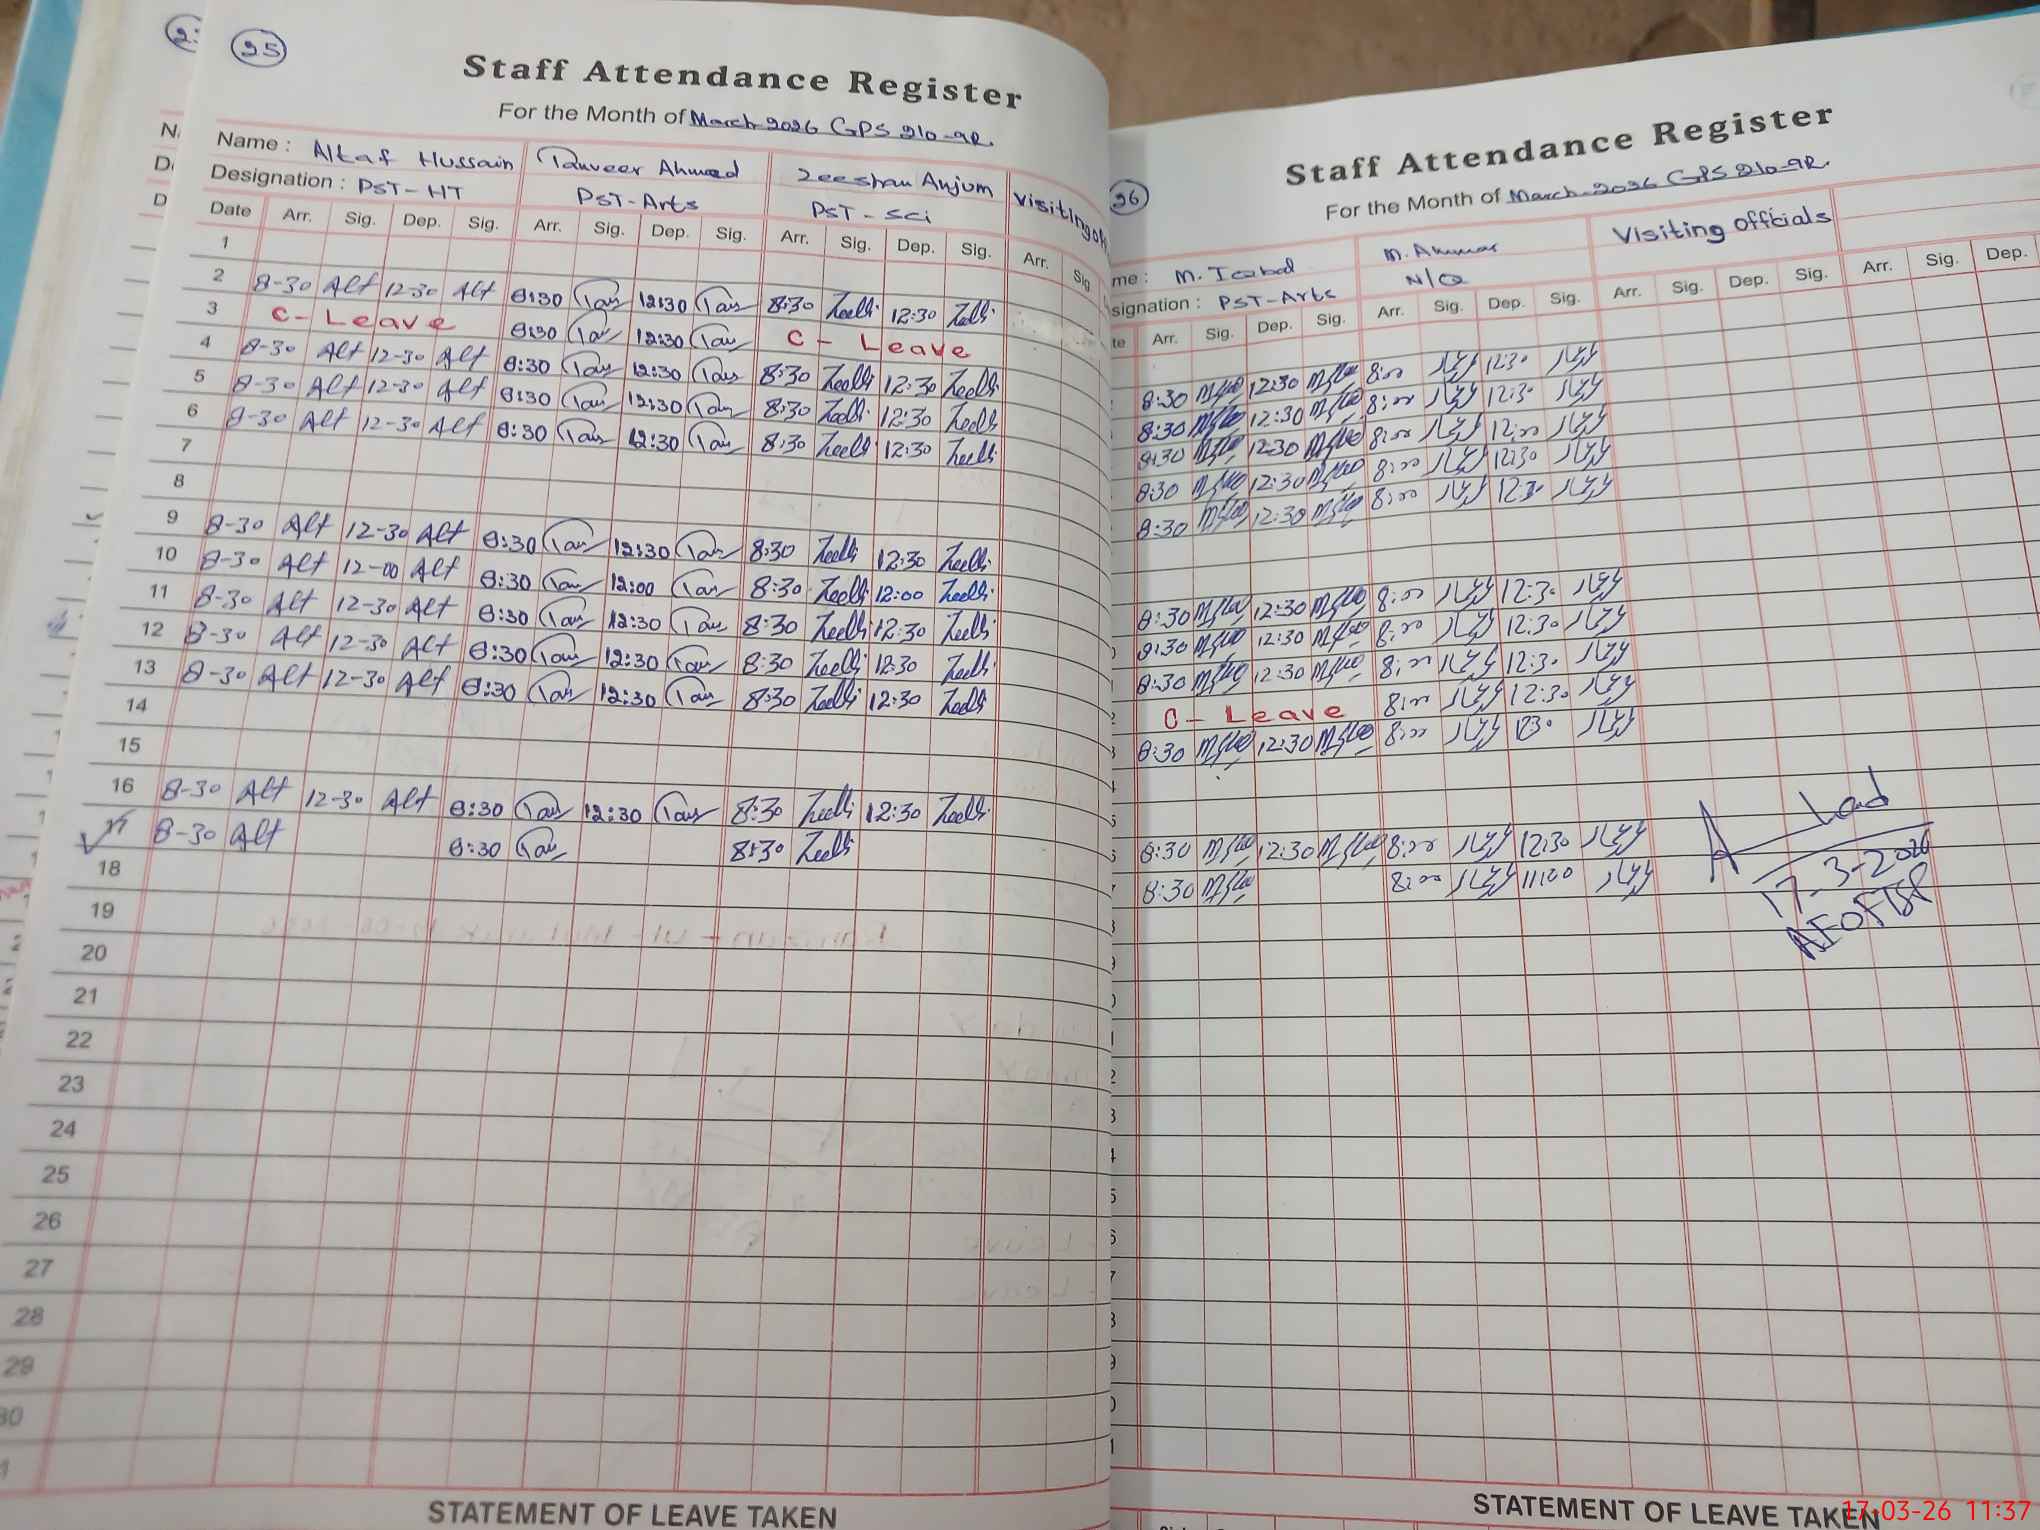 25
Staff Attendance Register
For the Month of March 2026 GPS 210-9R.
Name : Altaf Hussain Tanveer Ahmad Zeeshan Anjum Visiting
Designation : PST-HT PST-Arts PST-Sci
Date Arr. Sig. Dep. Sig. Arr. Sig. Dep. Sig. Arr. Sig. Dep. Sig. Arr. Sig.
1
2 8-30 Alt 12-30 Alt 8:30 Tan 12:30 Tan 8:30 Zeesh 12:30 Zeesh
3 C-Leave 8:30 Tan 12:30 Tan C-Leave
4 8-30 Alt 12-30 Alt 8:30 Tan 12:30 Tan 8:30 Zeesh 12:30 Zeesh
5 8-30 Alt 12-30 Alt 8:30 Tan 12:30 Tan 8:30 Zeesh 12:30 Zeesh
6 8-30 Alt 12-30 Alt 8:30 Tan 12:30 Tan 8:30 Zeesh 12:30 Zeesh
7
8
9 8-30 Alt 12-30 Alt 8:30 Tan 12:30 Tan 8:30 Zeesh 12:30 Zeesh
10 8-30 Alt 12-00 Alt 8:30 Tan 12:00 Tan 8:30 Zeesh 12:00 Zeesh
11 8-30 Alt 12-30 Alt 8:30 Tan 12:30 Tan 8:30 Zeesh 12:30 Zeesh
12 8-30 Alt 12-30 Alt 8:30 Tan 12:30 Tan 8:30 Zeesh 12:30 Zeesh
13 8-30 Alt 12-30 Alt 8:30 Tan 12:30 Tan 8:30 Zeesh 12:30 Zeesh
14
15
16 8-30 Alt 12-30 Alt 8:30 Tan 12:30 Tan 8:30 Zeesh 12:30 Zeesh
17 8-30 Alt 8:30 Tan 8:30 Zeesh
18
19
20
21
22
23
24
25
26
27
28
29
30
STATEMENT OF LEAVE TAKEN
26
Staff Attendance Register
For the Month of March 2026 GPS 210-9R.
M. Iqbal M. Ammar Visiting officials
PST-Arts N/Q
Arr. Sig. Dep. Sig. Arr. Sig. Dep. Sig. Arr. Sig. Dep. Sig. Arr. Sig. Dep.
8:30 12:30 8:00 12:30
8:30 12:30 8:00 12:30
8:30 12:30 8:00 12:00
8:30 12:30 8:00 12:30
8:30 12:30 8:00 12:30
8:30 12:30 8:00 12:30
8:30 12:30 8:00 12:30
8:30 12:30 8:00 12:30
C-Leave 8:00 12:30
8:30 12:30 8:00 12:30
8:30 12:30 8:00 12:30
8:30 8:00 11:00
17-3-2026
STATEMENT OF LEAVE TAKEN
17-03-26 11:37